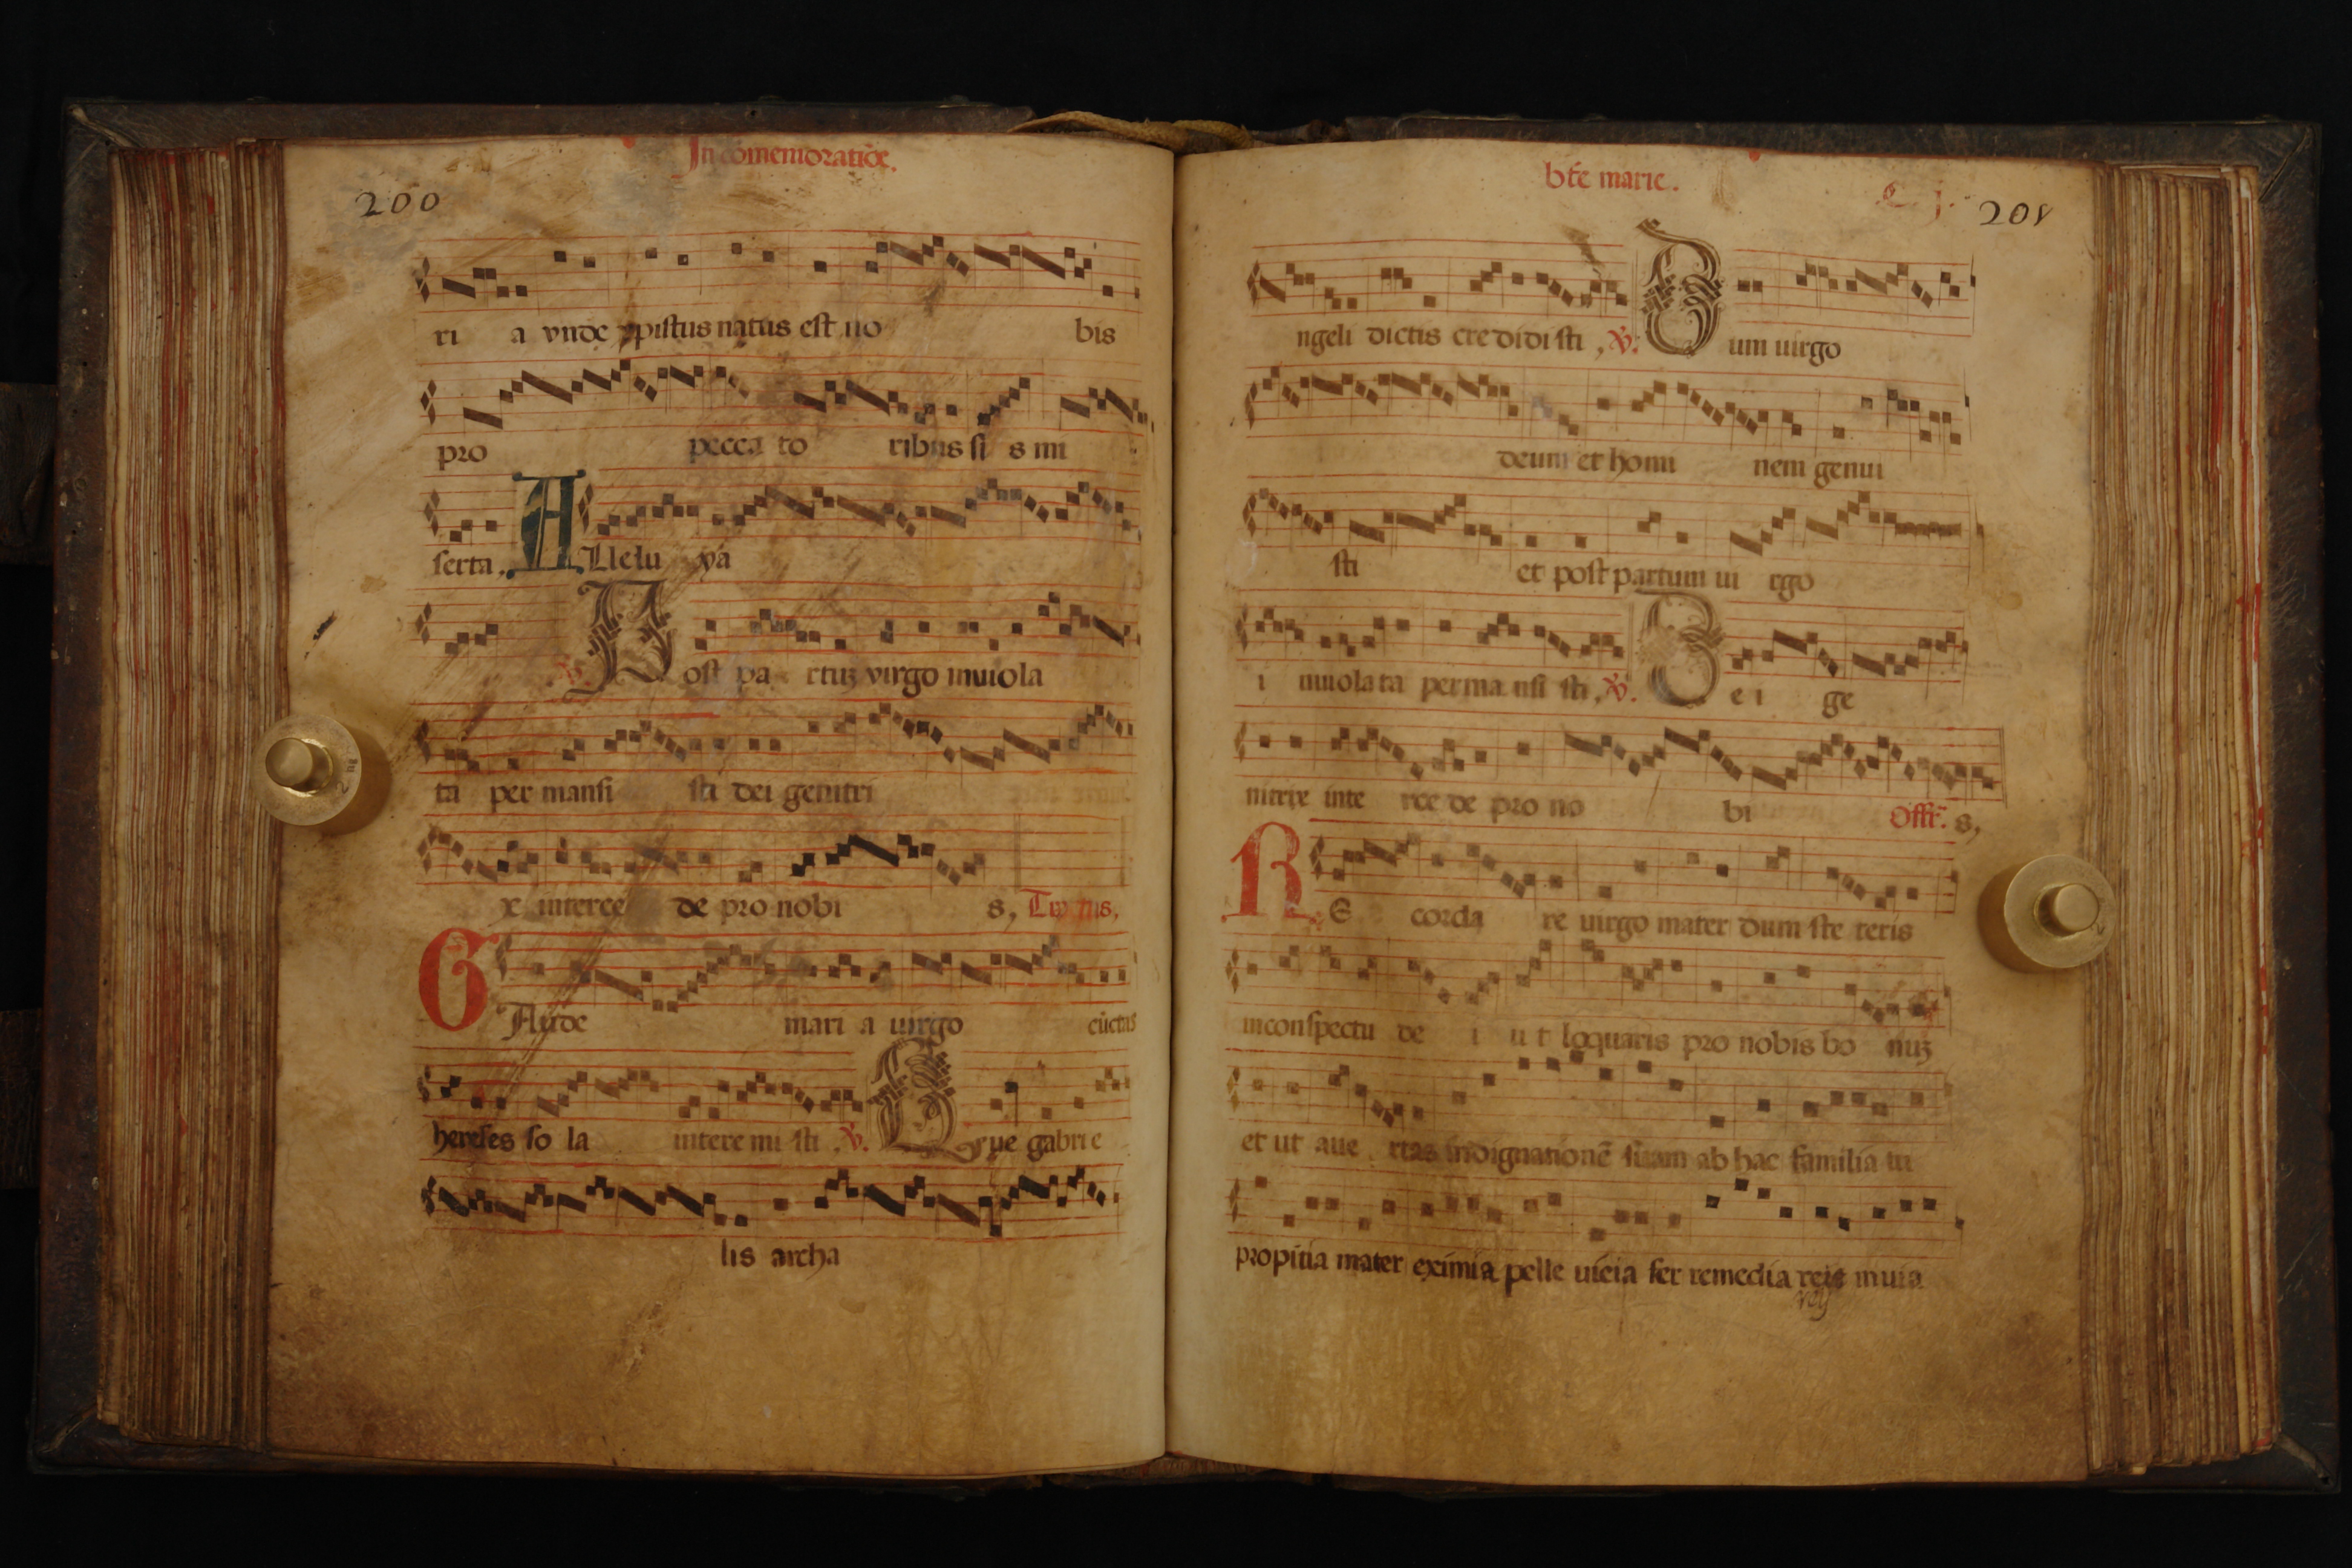 In cōmemoratiōe.
200
ri a vnde xpistus natus est no bis
pro pecca to ribus si s mi
serta. A Llelu ya
℣. Post pa rtuʒ virgo inuiola
ta per mansi sti dei genitri
x interce de pro nobi s, Tractus,
G Aude mari a uirgo cūctas
hereses so la intere mi sti. ℣. Que gabrie
lis archa
bt̄e marie.
C. j.
201
ngeli dictis cre didi sti, ℣. Dum uirgo
deum et homi nem genui
sti et post partum ui rgo
i nuiola ta perma nsi sti. ℣. De i ge
nitrix inte rce de pro no bi Offr̄. s,
R E corda re uirgo mater dum ste teris
inconspectu de i u t loquaris pro nobis bo nuʒ
et ut aue rtas indignationē suam ab hac familia tu
propitia mater eximia pelle uicia fer remedia reis inuia